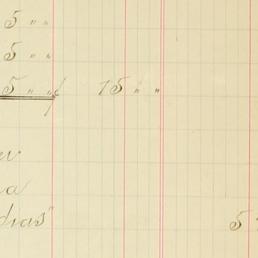 5 " "
5 " "
5 " " 15 " "
a
dias"
5